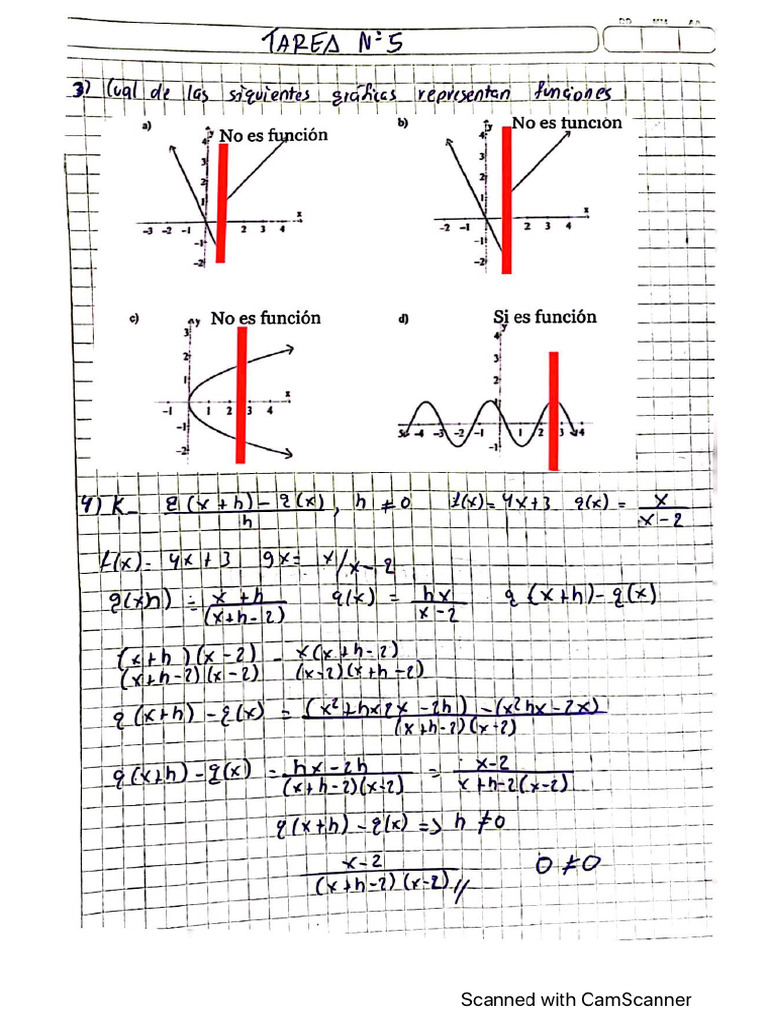 TAREA Nº 5
3) Cual de las siguientes gráficas representan funciones
a) No es función
b) No es función
y 4 3 2 1 -1 -2 -3 -2 -1 2 3 4 x
y 4 3 2 1 -1 -2 -2 -1 2 3 4 x
c) No es función
d) Si es función
y 3 2 1 -1 -2 -1 1 2 3 4 x
y 4 3 2 -1 -4 -3 -2 -1 1 2 3 4
4) K_ g(x+h)-g(x)/h, h ≠ 0 f(x)= 4x+3 g(x) = x/x-2
f(x)= 4x+3 gx= x/x-2
g(xh) = x+h/(x+h-2) g(x) = hx/x-2 g(x+h)-g(x)
(x+h)(x-2)/(x+h-2)(x-2) - x(x+h-2)/(x-2)(x+h-2)
g(x+h)-g(x) = (x²+hx2x-2h)-(x²hx-2x)/(x+h-2)(x-2)
g(x+h)-g(x) = hx-2h/(x+h-2)(x-2) = x-2/x+h-2(x-2)
g(x+h)-g(x) => h ≠ 0
x-2/(x+h-2)(x-2)// 0 ≠ 0
Scanned with CamScanner